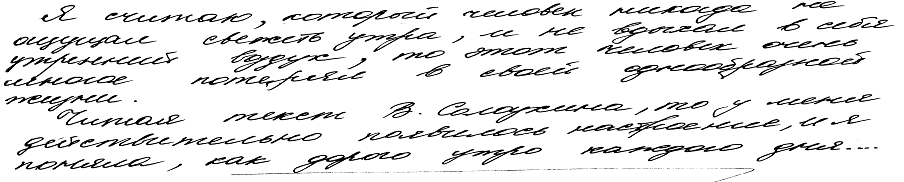 Я считаю, который человек никогда не
ощущал свежесть утра, и не вдыхал в себя
утренний воздух, то этот человек очень
многое потерял в своей однообразной
жизни.
Читая текст В. Солоухина, то у меня
действительно появилось настроение, и я
поняла, как дорого утро каждого дня....